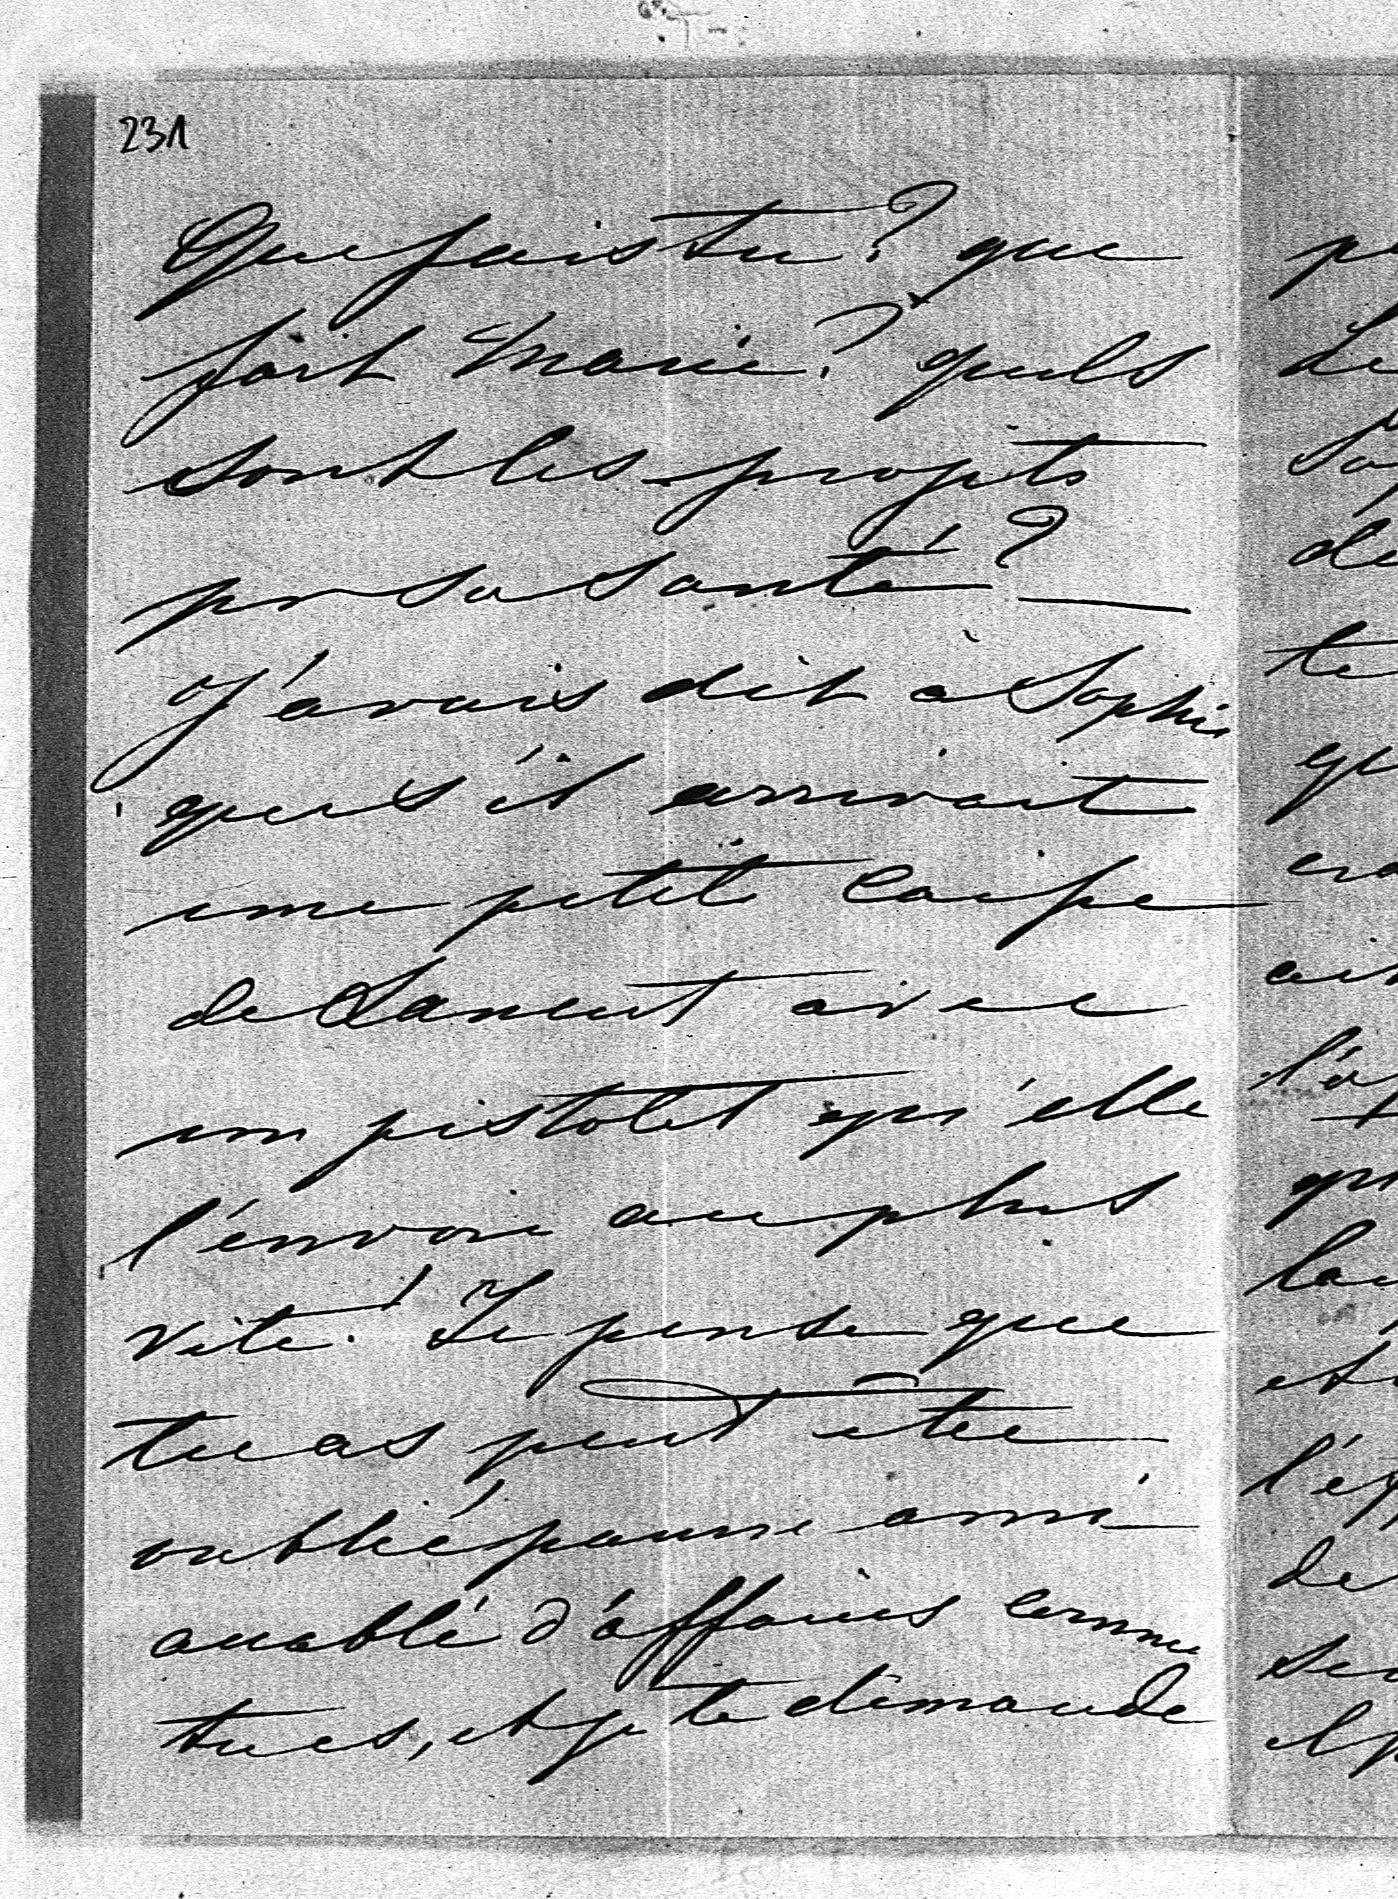 231
Que fais tu ? que
fait Marie ? quels
sont les projets
pr sa santé ? —
J'avais dit à Sophie
que s'il arrivait
une petite caisse
de avec
un pistolet qu'elle
l'envoie au plus
vite ! Je pense que
tu as peut être
oublié pauvre ami
accablé d'affaires comme
tu es, et je te demande